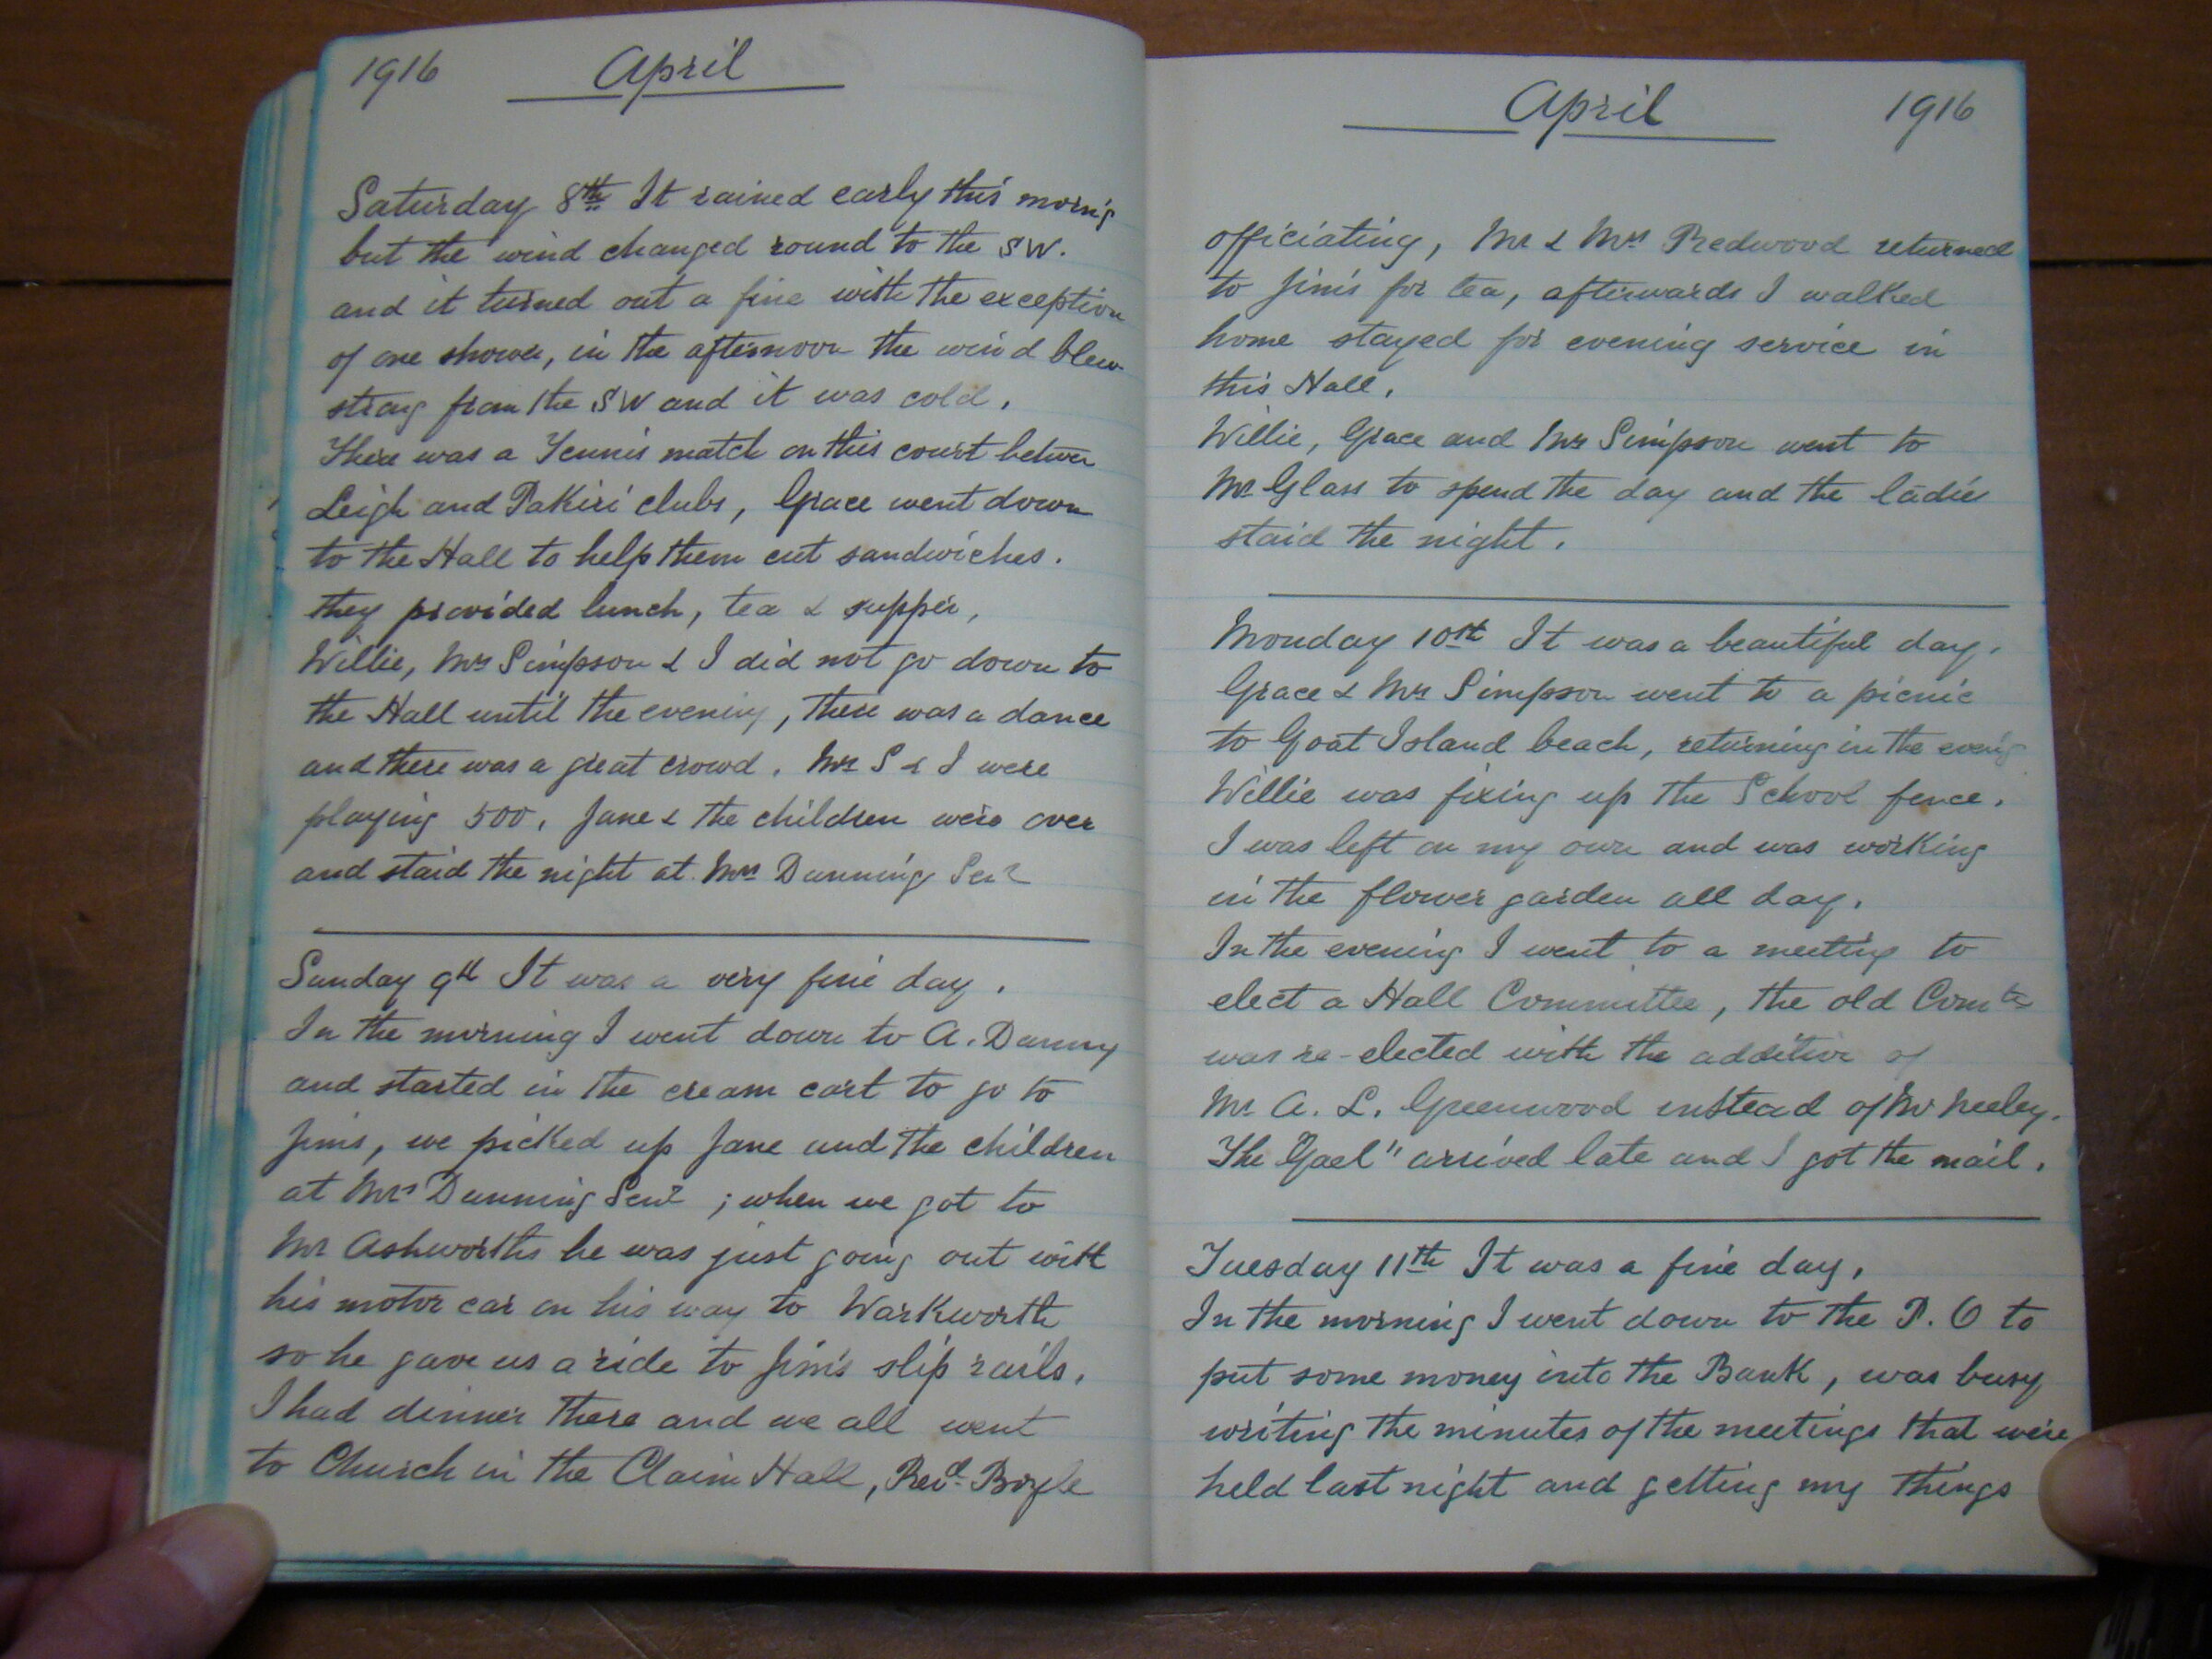 1916 April
Saturday 8th It rained early this morn'g
but the wind changed round to the SW.
and it turned out a fine with the exception
of one shower, in the afternoon the wind blew
strong from the SW and it was cold.
There was a Tennis match on this court between
Leigh and Pakiri clubs, Grace went down
to the Hall to help them cut sandwiches.
they provided lunch, tea & supper,
Willie, Mrs Simpson & I did not go down to
the Hall until the evening, there was a dance
and there was a great crowd. Mrs S & I were
playing 500, Jane & the children were over
and staid the night at Mrs Dunning Senr
Sunday 9th It was a very fine day.
In the morning I went down to A. Dunning
and started in the cream cart to go to
Jims, we picked up Jane and the children
at Mrs Dunning Senr ; when we got to
Mr Ashworths he was just going out with
his motor car on his way to Warkworth
so he gave us a ride to Jim's slip rails.
I had dinner there and we all went
to Church in the Claim Hall, Revd. Boyle
April 1916
officiating, Mr & Mrs Redwood returned
to Jim's for tea, afterwards I walked
home stayed for evening service in
this Hall.
Willie, Grace and Mrs Simpson went to
Mr Glass to spend the day and the ladies
staid the night.
Monday 10th It was a beautiful day.
Grace & Mrs Simpson went to a picnic
to Goat Island beach, returning in the eveng
Willie was fixing up the School fence.
I was left on my own and was working
in the flower garden all day.
In the evening I went to a meeting to
elect a Hall Committee, the old Comte
was re-elected with the addition of
Mr A. L. Greenwood instead of Mr Neeley.
The "Gael" arrived late and I got the mail.
Tuesday 11th It was a fine day,
In the morning I went down to the P. O to
put some money into the Bank, was busy
writing the minutes of the meetings that were
held last night and getting my things